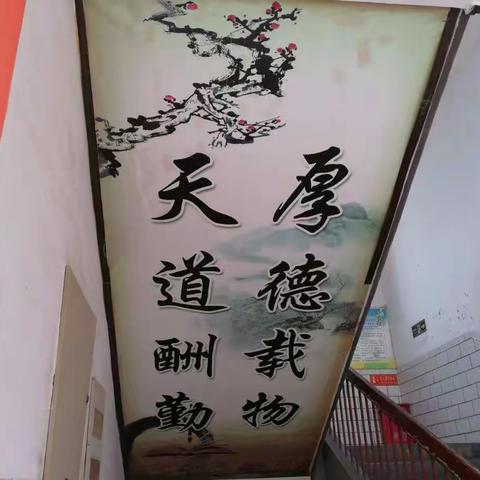 厚德载物
天道酬勤